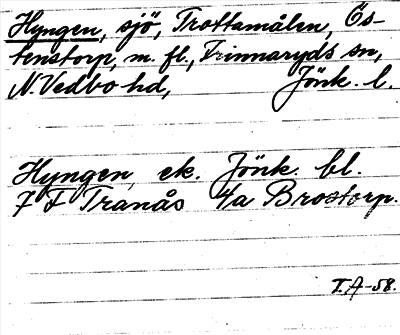 Hyngen, sjö, Trottamålen, Ös-
tenstorp, m. fl., Frinnaryds sn,
N. Vedbo hd, Jönk. l.
Hyngen ek. Jönk. bl.
7 F Tranås 4/a Brostorp.
T. A-58.